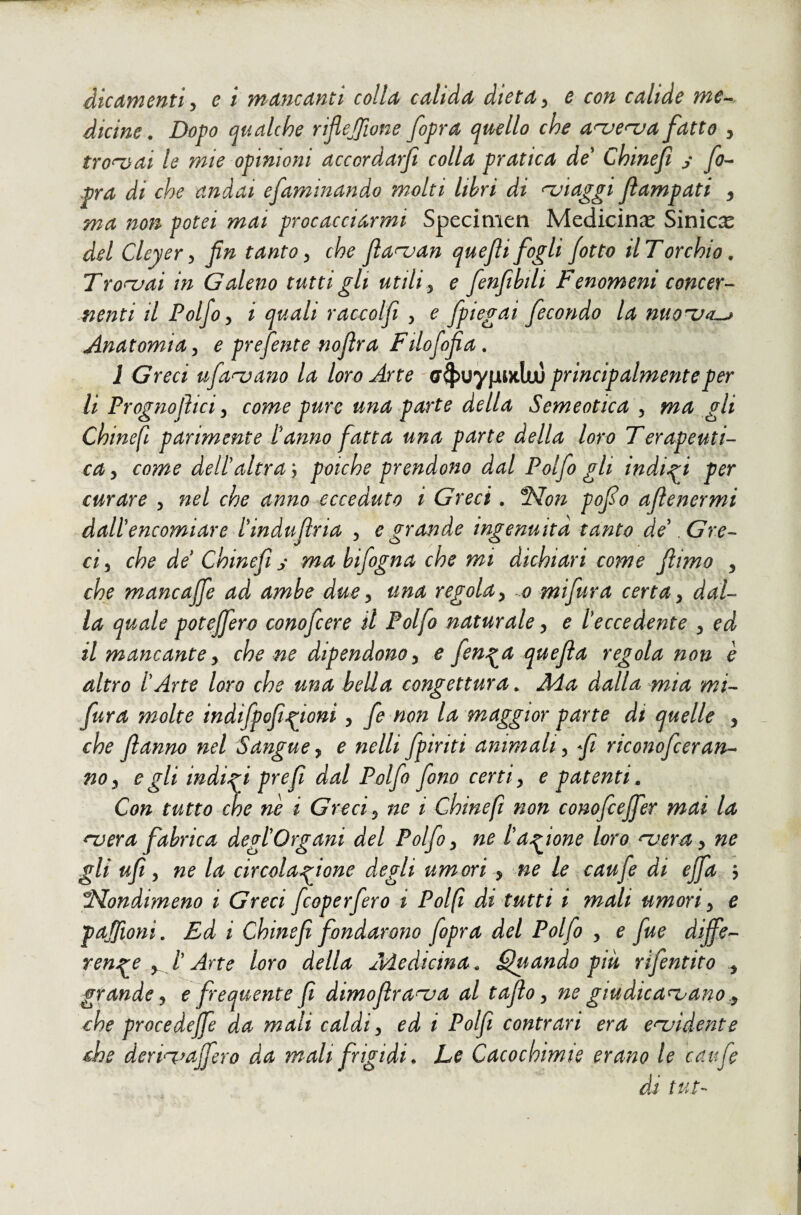 dicamenti, e i mancanti colla calida dieta, e con calide me-
dicine. Dopo qualche riflessione ſopra quello che aveva fatto,
trovai le mie opinioni accordarſi colla pratica de' Chineſi; ſo-
pra di che andai eſaminando molti libri di viaggi ſtampati,
ma non potei mai procacciarmi Specimen Medicinæ Sinicæ
del Cleyer, fin tanto, che ſtavan queſti fogli ſotto il Torchio.
Trovai in Galeno tutti gli utili, e ſenſibili Fenomeni concer-
nenti il Polſo, i quali raccolſi, e ſpiegai ſecondo la nuova
Anatomia, e preſente noſtra Filoſofia.
I Greci uſavano la loro Arte σφυγμικlὼ principalmente per
li Prognoſtici, come pure una parte della Semeotica, ma gli
Chineſi parimente l'anno fatta una parte della loro Terapeuti-
ca, come dell'altra; poiche prendono dal Polſo gli indizi per
curare, nel che anno ecceduto i Greci. Non poſſo aſtenermi
dall'encomiare l'induſtria, e grande ingenuità tanto de' Gre-
ci, che de' Chineſi; ma biſogna che mi dichiari come ſtimo,
che mancaſſe ad ambe due, una regola, o miſura certa, dal-
la quale poteſſero conoſcere il Polſo naturale, e l'eccedente, ed
il mancante, che ne dipendono, e ſenza queſta regola non è
altro l'Arte loro che una bella congettura. Ma dalla mia mi-
ſura molte indiſpoſizioni, ſe non la maggior parte di quelle,
che ſtanno nel Sangue, e nelli ſpiriti animali, ſi riconoſceran-
no, e gli indizi preſi dal Polſo ſono certi, e patenti.
Con tutto che nè i Greci, ne i Chineſi non conoſceſſer mai la
vera fabrica degl'Organi del Polſo, ne l'azione loro vera, ne
gli uſi, ne la circolazione degli umori, ne le cauſe di eſſa;
Nondimeno i Greci ſcoperſero i Polſi di tutti i mali umori, e
paſſioni. Ed i Chineſi fondarono ſopra del Polſo, e ſue diffe-
renze, l'Arte loro della Medicina. Quando più riſentito,
grande, e frequente ſi dimoſtrava al taſto, ne giudicavano,
che procedeſſe da mali caldi, ed i Polſi contrari era evidente
che derivaſſero da mali frigidi. Le Cacochimie erano le cauſe
di tut-